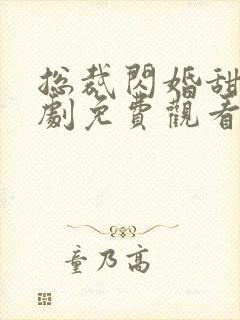 总裁閃婚甜
劇免費觀看
童乃高